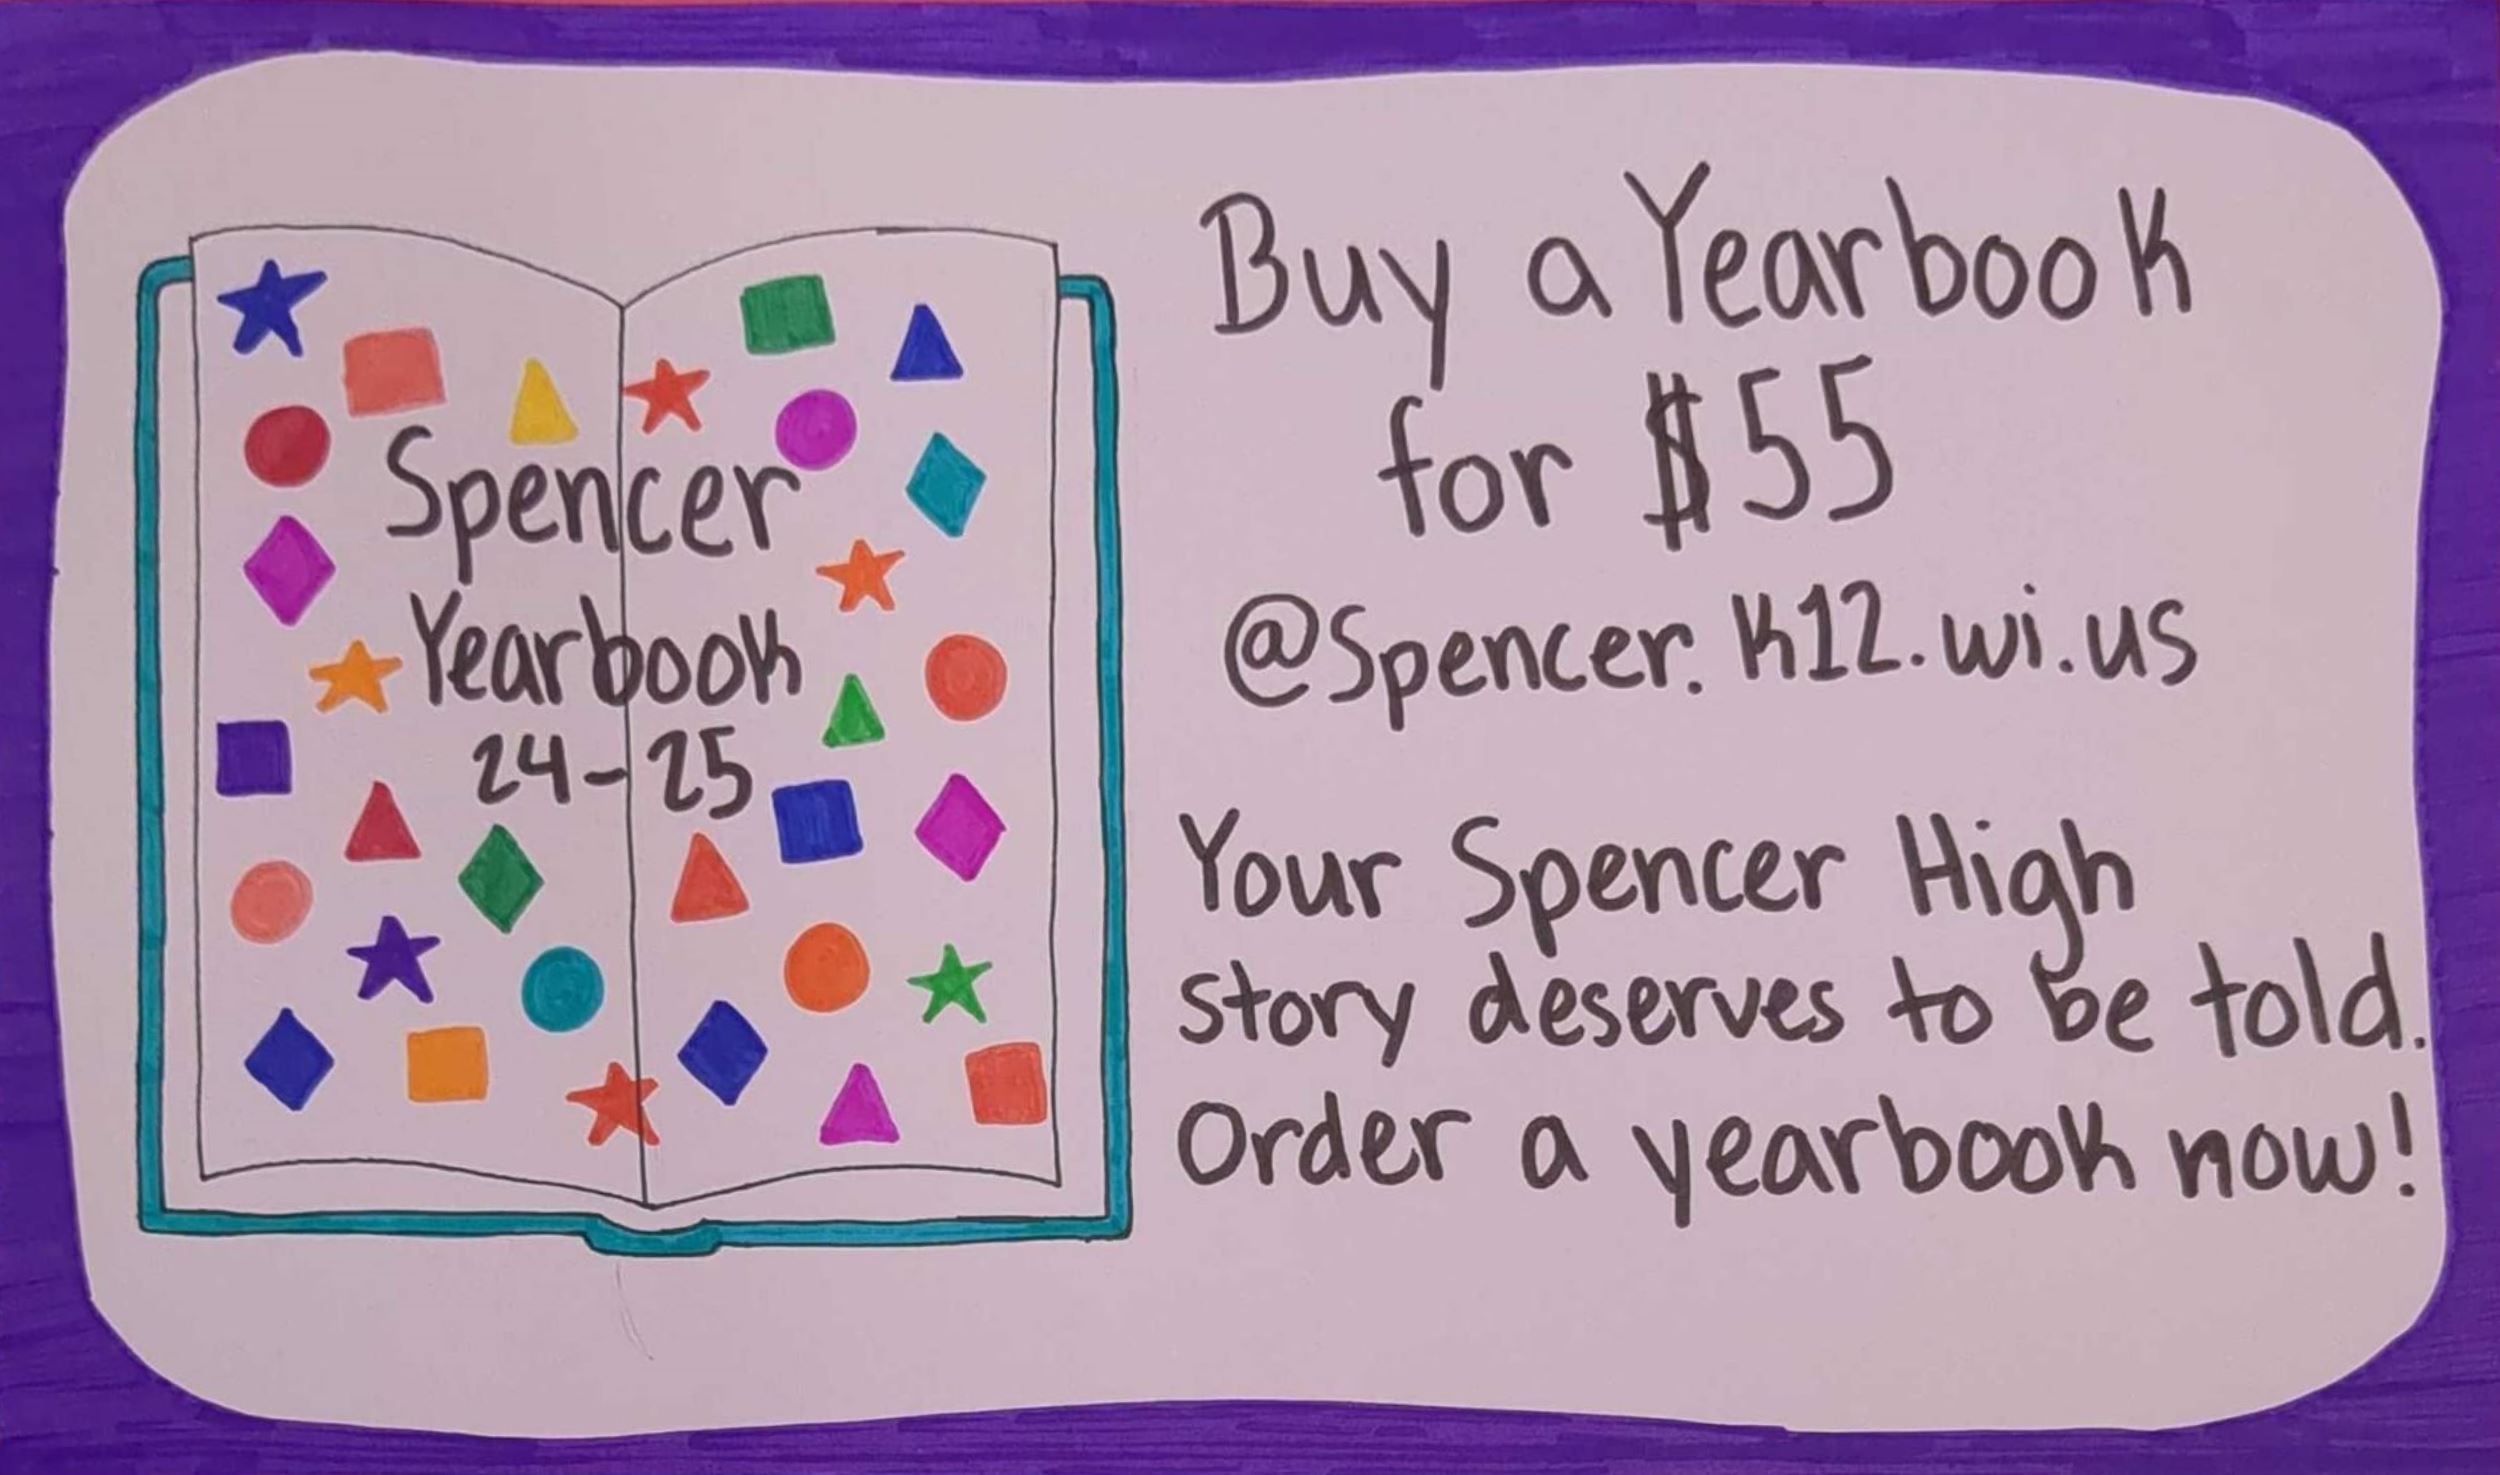 Spencer
Yearbook
24-25
Buy a Yearbook
for $55
@Spencer.K12.wi.us
Your Spencer High
story deserves to be told.
Order a yearbook now!